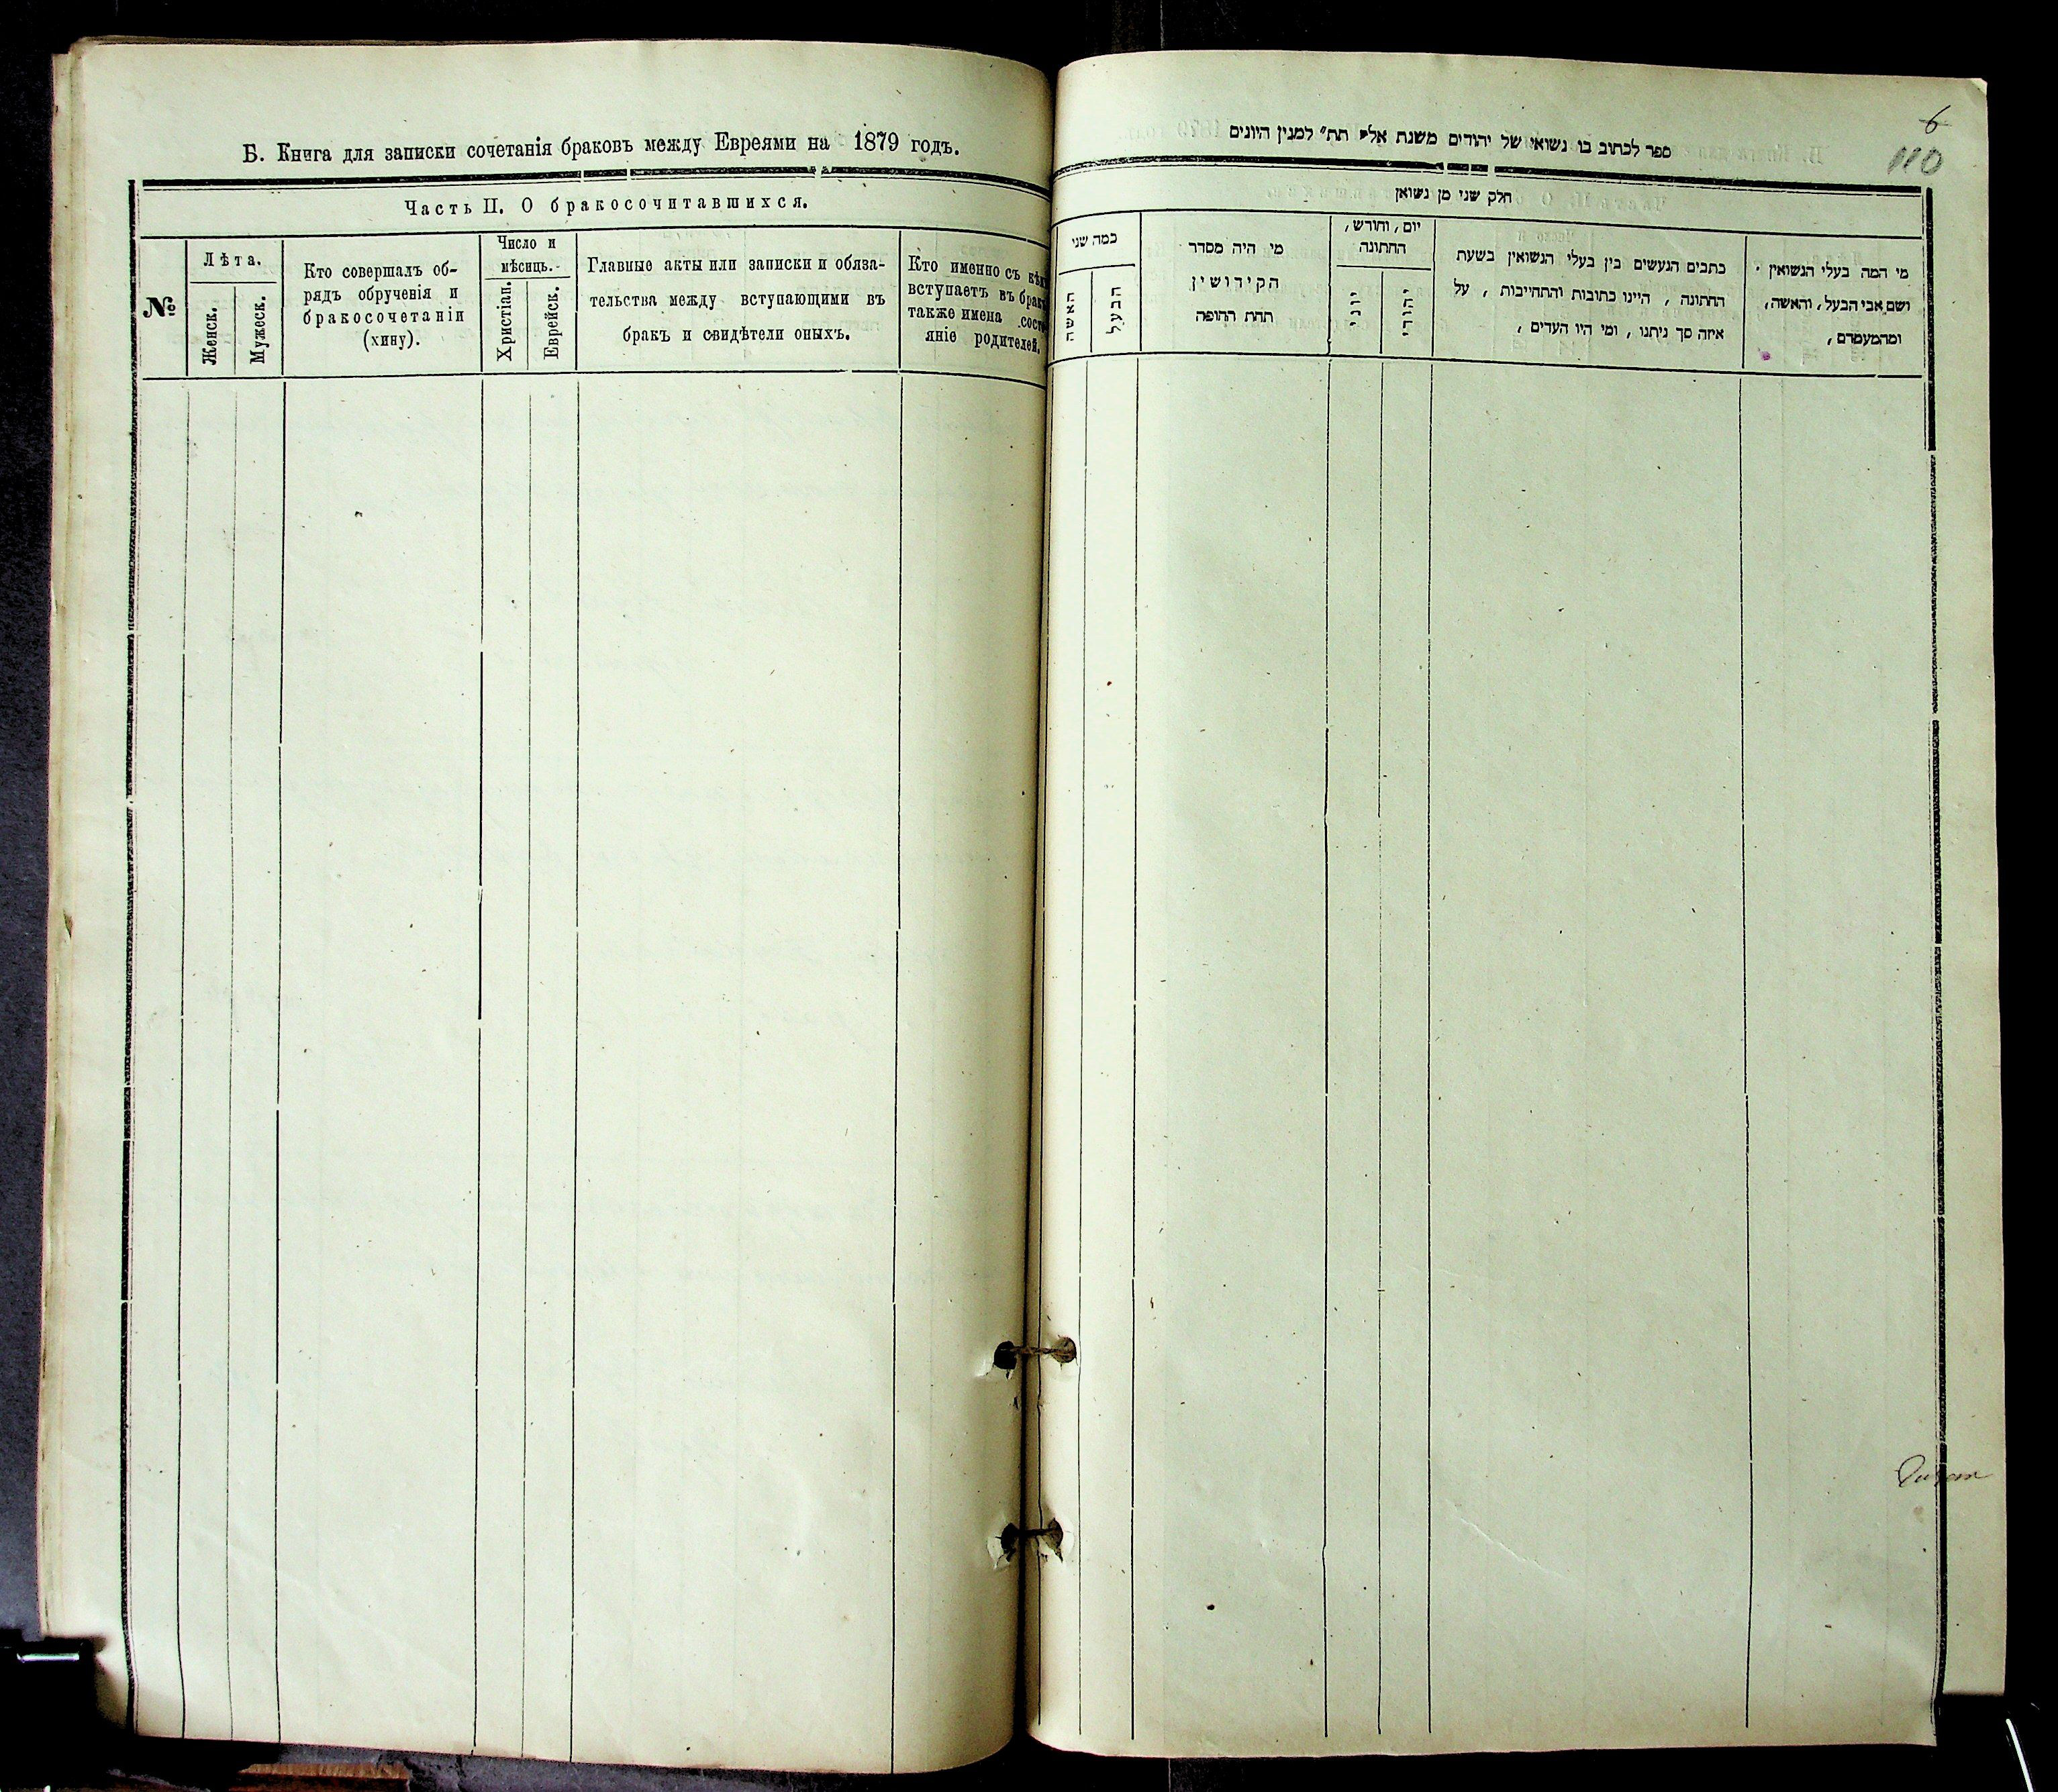 Б. Книга для записки сочетанія браковъ между Евреями на 1879 годъ.
Часть II. О бракосочитавшихся.
№
Лѣта.
Женск.
Мужеск.
Кто совершалъ об-
рядъ обрученія и
бракосочетаніи
(хину).
Число и
мѣсяцъ.
Христіан.
Еврейск.
Главные акты или записки и обяза-
тельства между вступающими въ
бракъ и свидѣтели оныхъ.
Кто именно съ кѣм
вступаетъ въ брак
также имена состо
яніе родителей.
6
110
ספר לכתוב בו נשואי של יהודים משנת אלף תת״ למנין היונים
חלק שני מן נשואין
מי המה בעלי הנשואין
ושם אבי הבעל, והאשה,
ומהמעמדם,
כתבים הנעשים בין בעלי הנשואין בשעת
החתונה, היינו כתובות והתחייבות, על
איזה סך ניתנו, ומי היו העדים,
יום, וחודש,
החתונה
יהודי
יוני
מי היה מסדר
הקידושין
תחת החופה
כמה שני
הבעל
האשה